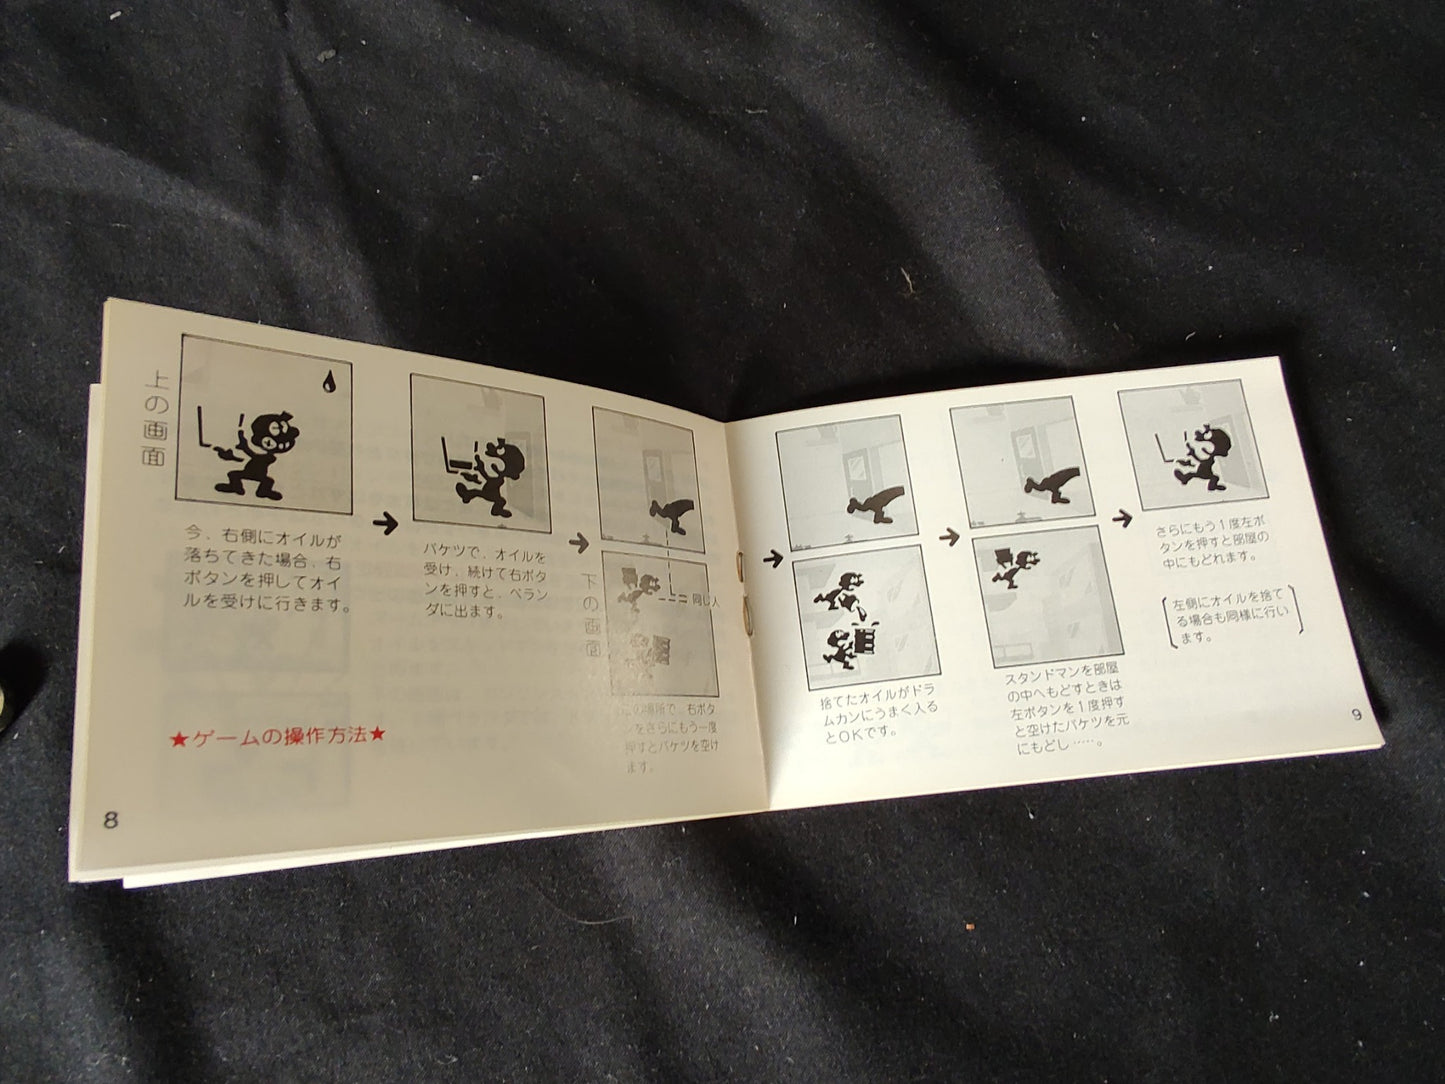 上の画面
今、右側にオイルが
落ちてきた場合、右
ボタンを押してオイ
ルを受けに行きます。
バケツで、オイルを
受け、続けて右ボタ
ンを押すと、ベラン
ダに出ます。
下の画面
同じ人
この場所で、右ボタ
ンをさらにもう一度
押すとバケツを空け
ます。
★ゲームの操作方法★
8
捨てたオイルがドラ
ムカンにうまく入る
とOKです。
スタンドマンを部屋
の中へもどすときは
左ボタンを1度押す
と空けたバケツを元
にもどし……。
さらにもう1度左ボ
タンを押すと部屋の
中にもどれます。
左側にオイルを捨て
る場合も同様に行い
ます。
9